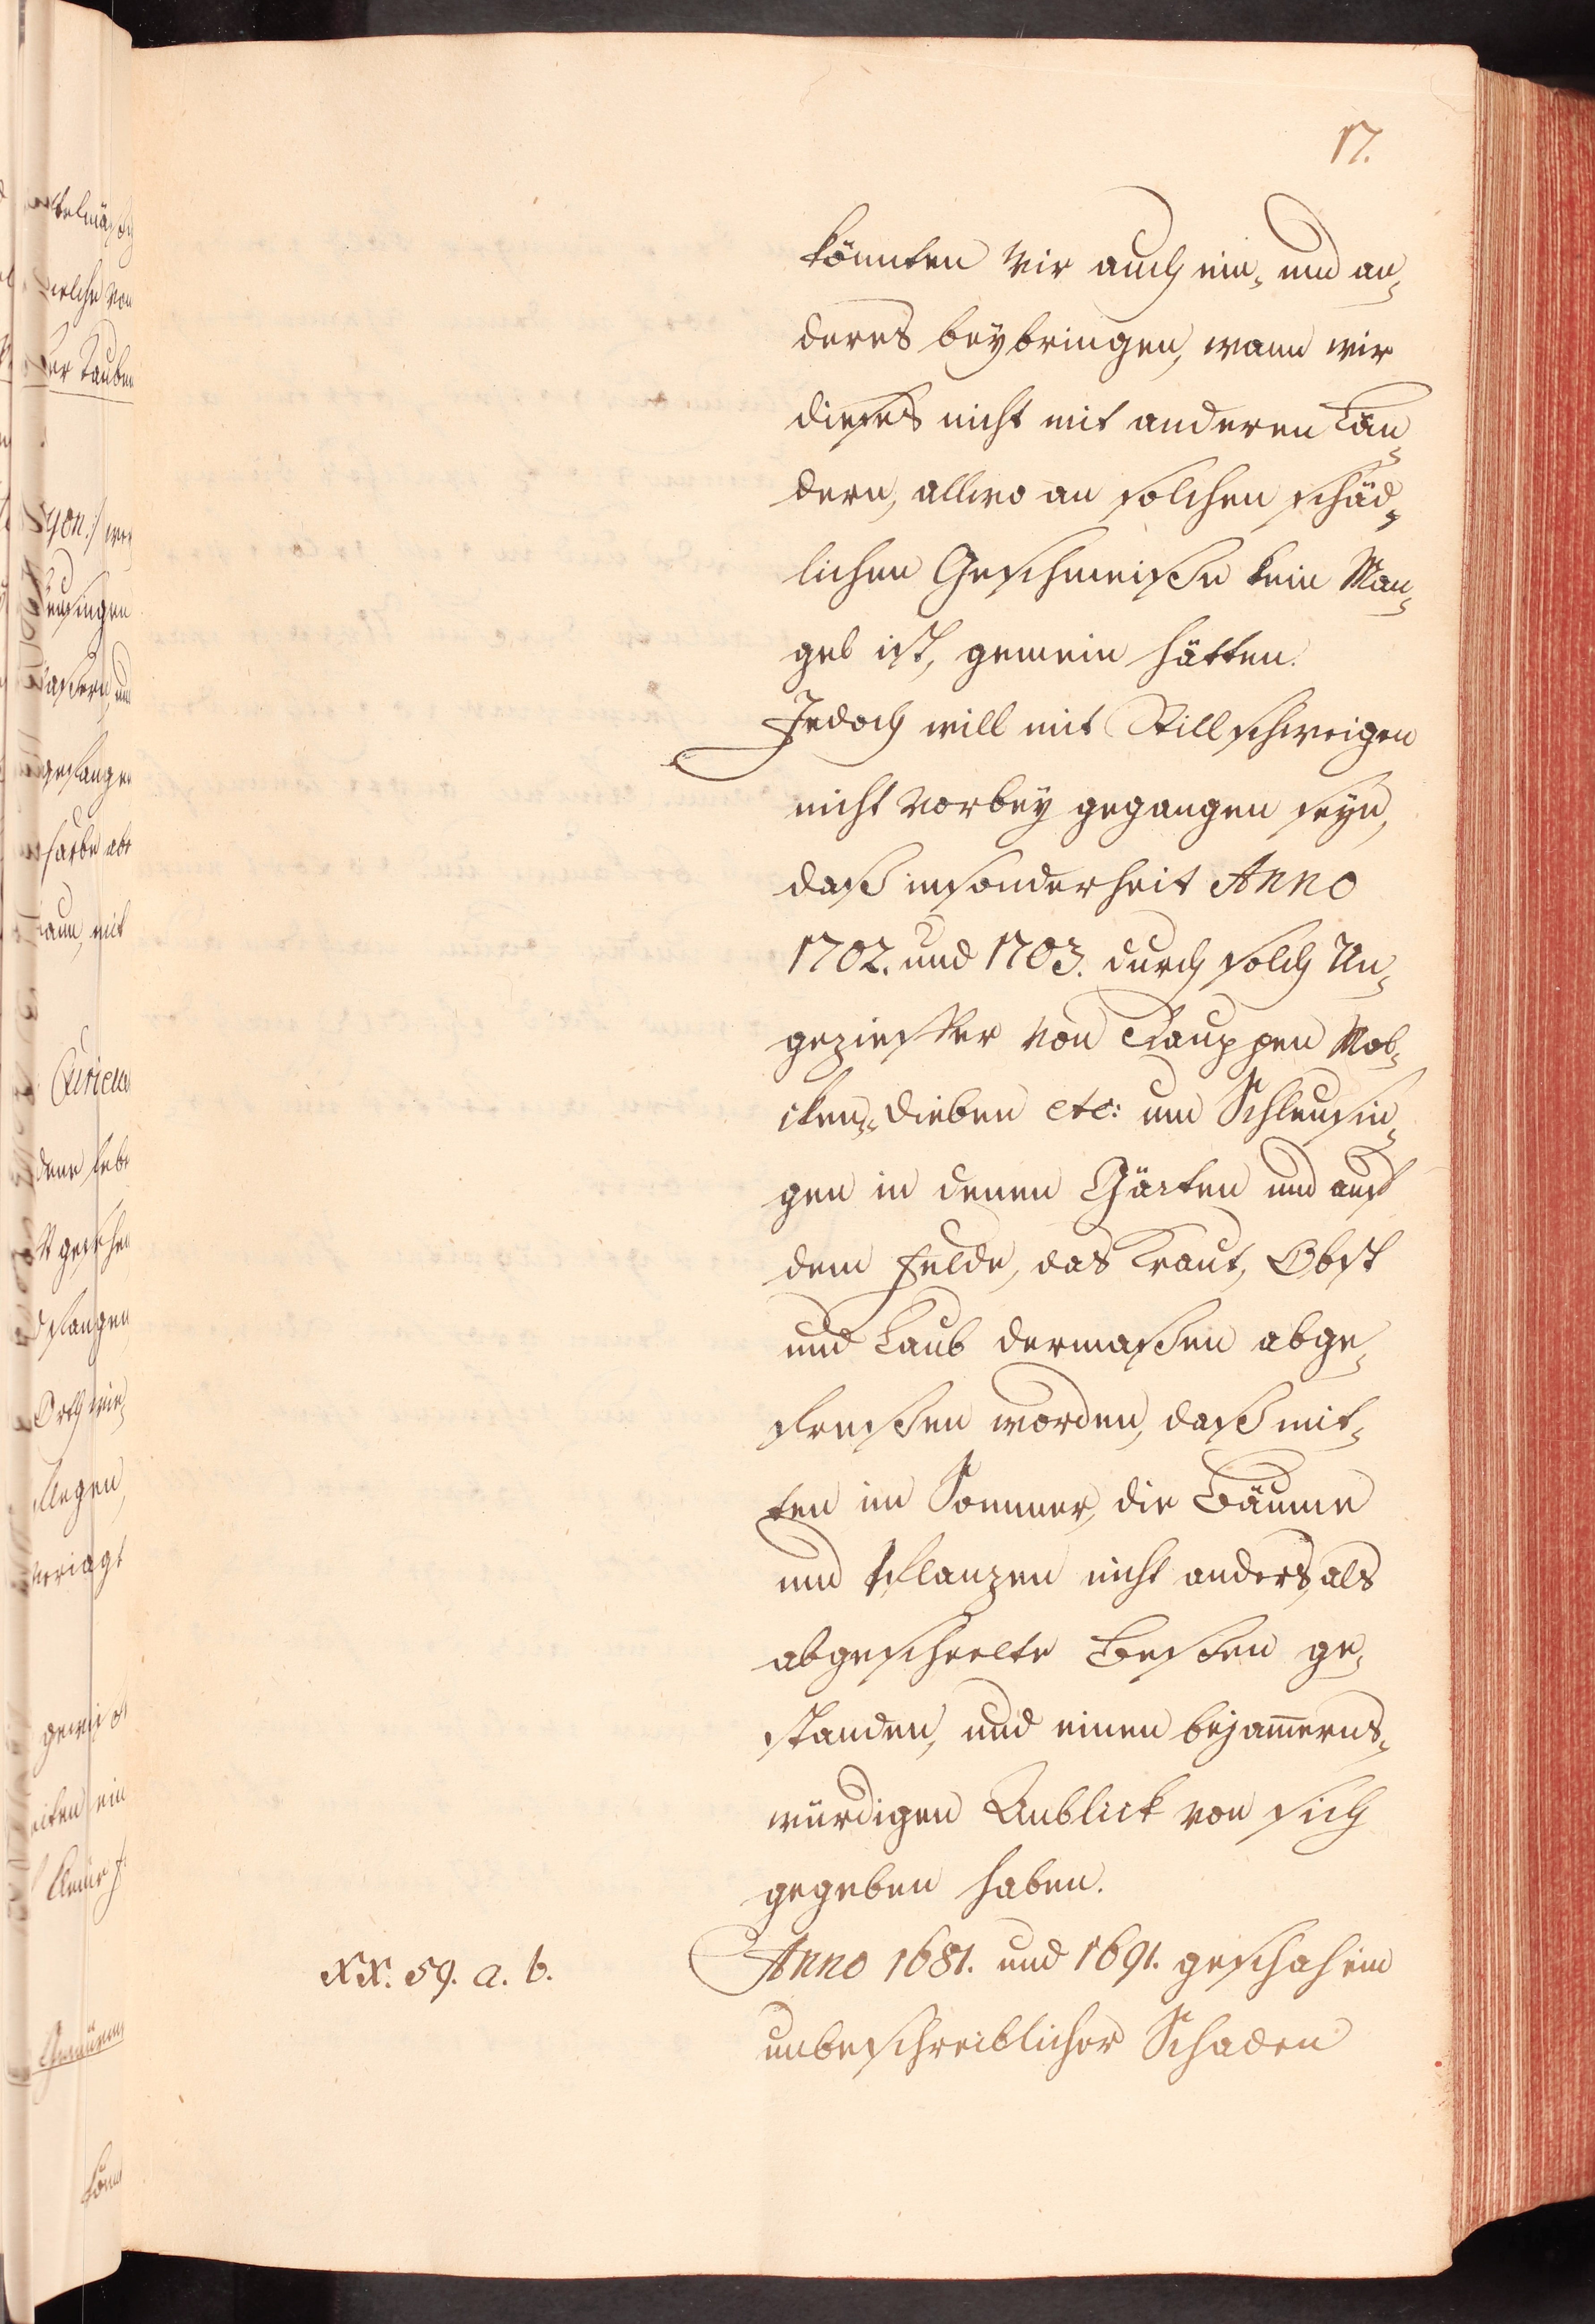 17.
könnten wir auch ein- und an-
deres beybringen, wann wir
dieses nicht mit anderen Län-
dern, allwo an solchen schäd-
lichen Geschmeiße kein Man-
gel ist, gemein hätten.
Jedoch will mit Stillschweigen
nicht vorbey gegangen seyn,
daß insonderheit Anno
1702. und 1703. durch solch Un-
geziefer von Rauppen Mol-
cken-dieben etc: um Schleusin-
gen in denen Gärten und auf
dem Felde, das Kraut, Obst
und Laub dermaßen abge-
freßen worden, daß mit-
ten im Sommer, die Bäume
und Pflanzen nicht anders, als
abgescheelte Besen ge-
standen, und einen bejam̅erns-
würdigen Anblick von sich
gegeben haben.
XX. 59. a. b.
Anno 1681. und 1691. geschah ein
unbeschreiblicher Schaden